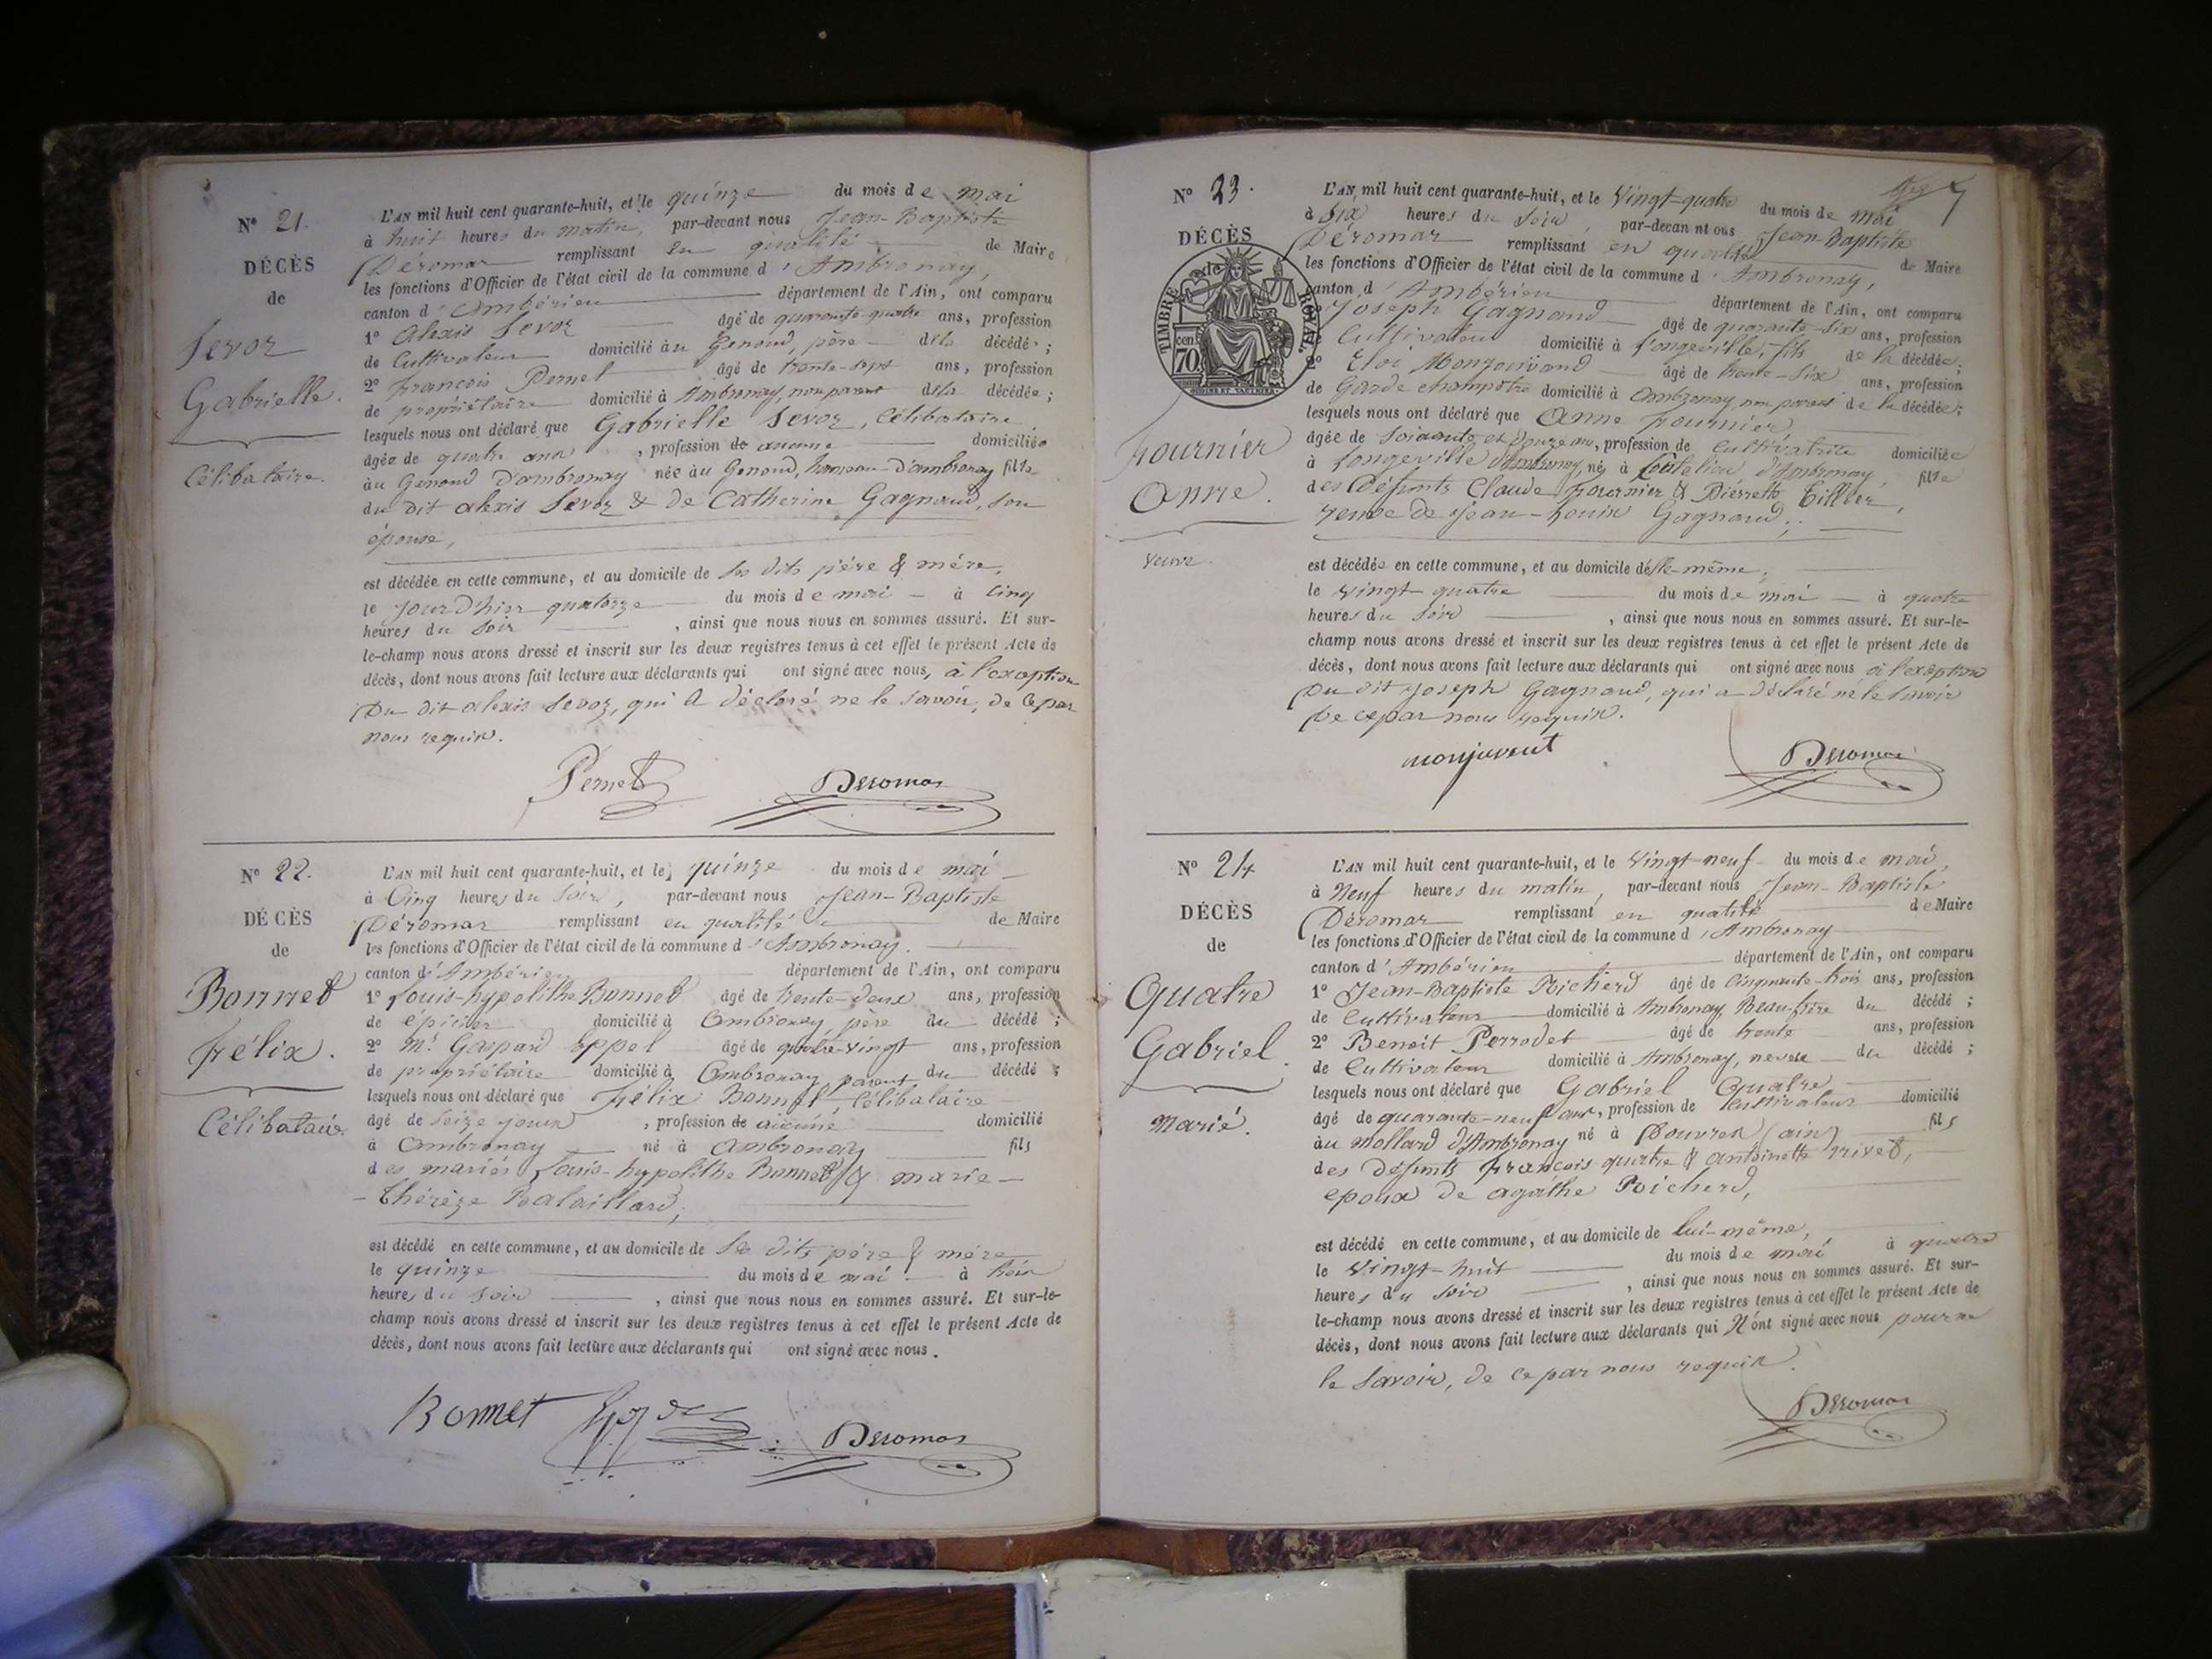 N° 21.
DÉCÈS
de
Sevoz
Gabrielle.
Célibataire.
L'AN mil huit cent quarante-huit, et le quinze du mois de mai
à huit heures du matin, par-devant nous Jean-Baptiste
Déromas remplissant en qualité de Maire
les fonctions d'Officier de l'état civil de la commune d'Ambronay,
canton d'Ambérieu département de l'Ain, ont comparu
1° Alexis Sevoz âgé de quarante-quatre ans, profession
de Cultivateur domicilié au Genoud, père de la décédée;
2° François Pernet âgé de trente-sept ans, profession
de propriétaire domicilié à Ambronay, non parent de la décédée;
lesquels nous ont déclaré que Gabrielle Sevoz, Célibataire
âgée de quatre ans, profession de aucune domiciliée
au Genoud d'ambronay née au Genoud, hameau d'ambronay fille
du dit alexis Sevoz & de Catherine Gagnaud, son
épouse,
est décédée en cette commune, et au domicile de ses dits père & mère,
le jour d'hier quatorze du mois de mai à Cinq
heures du soir, ainsi que nous nous en sommes assuré. Et sur-
le-champ nous avons dressé et inscrit sur les deux registres tenus à cet effet le présent Acte de
décès, dont nous avons fait lecture aux déclarants qui ont signé avec nous, à l'exception
Du dit alexis Sevoz, qui a déclaré ne le savoir, de ce par
nous requis.
Pernet Deromas
N° 22.
DÉCÈS
de
Bonnet
Félix.
Célibataire.
L'AN mil huit cent quarante-huit, et le quinze du mois de mai
à Cinq heures du soir, par-devant nous Jean-Baptiste
Déromas remplissant en qualité de Maire
les fonctions d'Officier de l'état civil de la commune d'Ambronay.
canton d'Ambérieu département de l'Ain, ont comparu
1° Louis-hypolithe Bonnet âgé de trente-deux ans, profession
de épicier domicilié à Ambronay, père du décédé;
2° Mr Gaspard Eppel âgé de quatre-vingt ans, profession
de propriétaire domicilié à Ambronay, parent du décédé;
lesquels nous ont déclaré que Félix Bonnet, Célibataire
âgé de seize jours, profession de aucune domicilié
à Ambronay né à Ambronay fils
des mariés Louis-hypolithe Bonnet & marie-
-Thérèze
est décédé en cette commune, et au domicile de ses dits père & mère
le quinze du mois de mai à trois
heures du soir, ainsi que nous nous en sommes assuré. Et sur-le-
champ nous avons dressé et inscrit sur les deux registres tenus à cet effet le présent Acte de
décès, dont nous avons fait lecture aux déclarants qui ont signé avec nous.
Bonnet Deromas
N° 23.
DÉCÈS
de
TIMBRE ROYAL
70 cen
Fournier
Anne.
veuve.
7
L'AN mil huit cent quarante-huit, et le Vingt-quatre du mois de mai
à Six heures du soir, par-devant nous Jean Baptiste
Déromas remplissant en qualité de Maire
les fonctions d'Officier de l'état civil de la commune d'Ambronay,
canton d'Ambérieu département de l'Ain, ont comparu
1° Joseph Gagnaud âgé de quarante-six ans, profession
de Cultivateur domicilié à Longeville, fils de la décédée;
2° Eloi Monjouvand âgé de trente-six ans, profession
de Garde champêtre domicilié à Ambronay, non parent de la décédée;
lesquels nous ont déclaré que Anne Fournier
âgée de soixante et douze ans, profession de Cultivatrice domiciliée
à Longeville d'Ambronay, née à d'Ambronay fille
des Défunts Claude Fournier & Pierrette Tillier,
veuve de Jean-Louis Gagnaud,
est décédée en cette commune, et au domicile d'elle-même,
le vingt quatre du mois de mai à quatre
heures du soir, ainsi que nous nous en sommes assuré. Et sur-le-
champ nous avons dressé et inscrit sur les deux registres tenus à cet effet le présent Acte de
décès, dont nous avons fait lecture aux déclarants qui ont signé avec nous à l'exception
Du dit Joseph Gagnaud, qui a déclaré ne le savoir
De ce par nous requis.
monjuvent Deromas
N° 24
DÉCÈS
de
Quatre
Gabriel.
Marié.
L'AN mil huit cent quarante-huit, et le Vingt-neuf du mois de mai,
à Neuf heures du matin, par-devant nous Jean-Baptiste
Déromas remplissant en qualité de Maire
les fonctions d'Officier de l'état civil de la commune d'Ambronay
canton d'Ambérieu département de l'Ain, ont comparu
1° Jean-Baptiste Poicherd âgé de Cinquante-trois ans, profession
de Cultivateur domicilié à Ambronay, Beau-frère du décédé;
2° Benoit Perrodet âgé de trente ans, profession
de Cultivateur domicilié à Ambronay, neveu du décédé;
lesquels nous ont déclaré que Gabriel Quatre
âgé de quarante-neuf ans, profession de Cultivateur domicilié
au Mollard d'Ambronay né à Douvres (ain) fils
des défunts François quatre & antoinette rivet,
epoux de agathe Poicherd,
est décédé en cette commune, et au domicile de lui-même,
le vingt-huit du mois de mai à quatre
heures du soir, ainsi que nous nous en sommes assuré. Et sur-
le-champ nous avons dressé et inscrit sur les deux registres tenus à cet effet le présent Acte de
décès, dont nous avons fait lecture aux déclarants qui N'ont signé avec nous pour ne
le savoir, de ce par nous requis.
Deromas